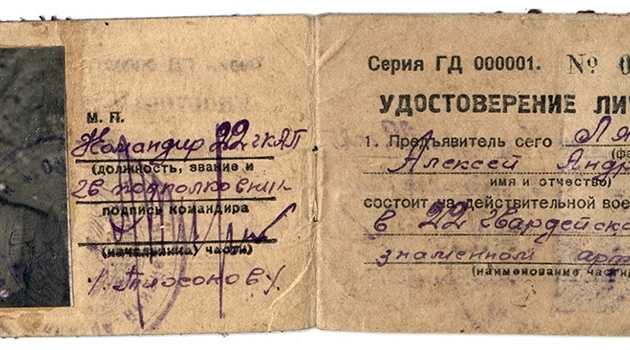 М. П.
Командир 22 гкАП
(должность, звание и
гв подполковник
подпись командира
(начальника) части)
Серия ГД 000001. № 0
УДОСТОВЕРЕНИЕ ЛИ
1. Предъявитель сего Ля
(фа
Алексей Андр
имя и отчество)
состоит на действительной вое
в 22 Гвардейско
знаменном арт
(наименование части